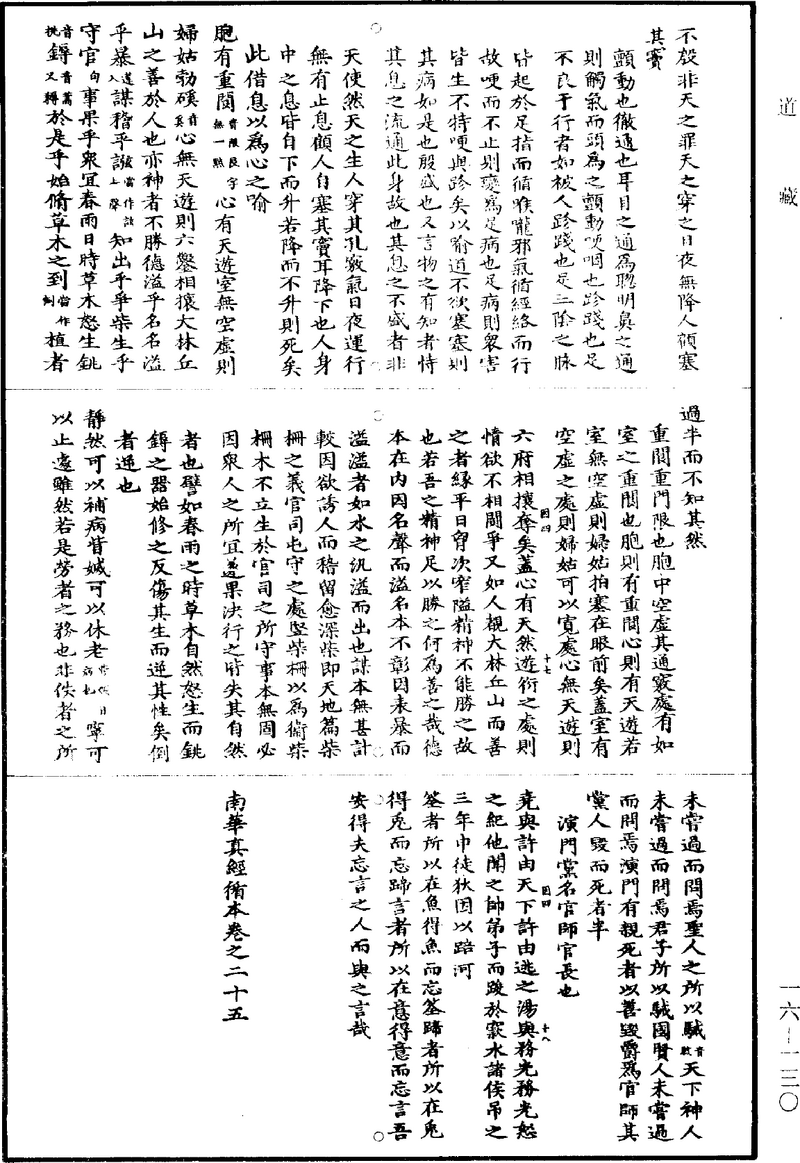 道藏
不殷非天之罪天之穿之日夜無降人顧塞
其竇
顫動也徹通也耳目之通為聰明鼻之通
則觸氣而頭為之顫動哽咽也跈踐也足
不良于行者如被人跈踐也足三陰之脉
皆起於足指而循喉嚨邪氣循經絡而行
故哽而不止則變為足病也足病則衆害
皆生不特哽與跈矣以喻道不欲塞塞則
其病如是也殷盛也又言物之有知者恃
其息之流通此身故也其息之不盛者非
天使然天之生人穿其孔竅氣日夜運行
無有止息顧人自塞其竇耳降下也人身
中之息皆自下而升若降而不升則死矣
此借息以為心之喻
胞有重閬音限良字無一點心有天遊室無空虛則
婦姑勃磎音奚心無天遊則六鑿相攘大林丘
山之善於人也亦神者不勝德溢乎名名溢
乎暴謀稽乎誸當作詃上聲知出乎爭柴生乎
守官句事果乎衆宜春雨日時草木怒生銚
鎒於是乎始脩草木之到當作倒植者
過半而不知其然
重閬重門限也胞中空虛其通竅處有如
室之重閬也胞則有重閬心則有天遊若
室無空虛則婦姑拍塞在眼前矣蓋室有
空虛之處則婦姑可以寬處心無天遊則
六府相攘奪矣蓋心有天然遊衍之處則
情欲不相鬬爭又如人覩大林丘山而善
之者緣平日胷次窄隘精神不能勝之故
也若吾之精神足以勝之何為善之哉德
本在内因名聲而溢名本不彰因表暴而
溢溢者如水之汎溢而出也謀本無甚計
較因欲誘人而稽留愈深柴即天地篇柴
柵之義官司屯守之處竪柴柵以為衛柴
柵木不立生於官司之所守事本無固必
因衆人之所宜遂果決行之皆失其自然
者也譬如春雨之時草木自然怒生而銚
鎒之器始修之反傷其生而逆其性矣倒
者通也
靜然可以補病眥媙可以休老寧可
以止遽雖然若是勞者之務也非佚者之所
未嘗過而問焉聖人之所以駴天下神人
未嘗過而問焉君子所以駴國賢人未嘗過
而問焉演門有親死者以善毀爵為官師其
黨人毀而死者半
演門黨名官師官長也
堯與許由天下許由逃之湯與務光務光怒
之紀他聞之帥弟子而踆於窾水諸侯弔之
三年申徒狄因以踣河
筌者所以在魚得魚而忘筌蹄者所以在兔
得兔而忘蹄言者所以在意得意而忘言吾
安得夫忘言之人而與之言哉
南華真經循本卷之二十五
因四
十七
因四
十八
一六—一三〇